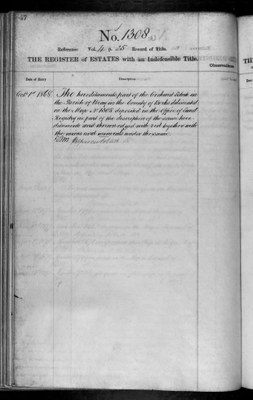 47
No. 1308
Reference Vol. 4 p. 55 Record of Title.
THE REGISTER of ESTATES with an Indefeasible Title.
Date of Entry Description Observations
Oct 1st 1868. The hereditaments part of the Orchard Estate in
the Parish of Bray in the County of Berks delineated
on the Map No 1308 deposited in the Office of Land
Registry as part of the description of the same here-
ditaments and thereon edged with red together with
the mines and minerals under the same
THE
Date of